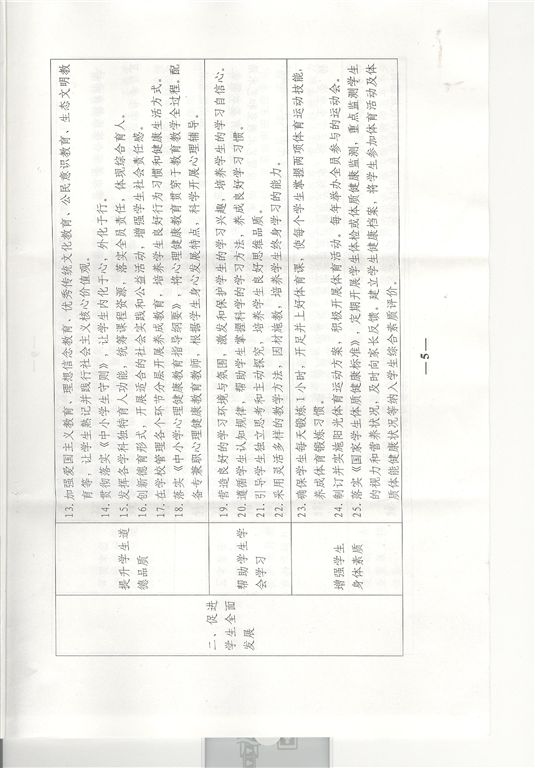 二、促进
学生全面
发展
提升学生道
德品质
13. 加强爱国主义教育、理想信念教育、优秀传统文化教育、公民意识教育、生态文明教
育等，让学生熟记并践行社会主义核心价值观。
14. 贯彻落实《中小学生守则》，让学生内化于心，外化于行。
15. 发挥各学科独特育人功能，统筹课程资源，落实全员责任，体现综合育人。
16. 创新德育形式，开展适合的社会实践和公益活动，增强学生社会责任感。
17. 在学校管理各个环节分层开展养成教育，培养学生良好行为习惯和健康生活方式。
18. 落实《中小学心理健康教育指导纲要》，将心理健康教育贯穿于教育教学全过程。配
备专兼职心理健康教育教师，根据学生身心发展特点，科学开展心理辅导。
帮助学生学
会学习
19. 营造良好的学习环境与氛围，激发和保护学生的学习兴趣，培养学生的学习自信心。
20. 遵循学生认知规律，帮助学生掌握科学的学习方法，养成良好学习习惯。
21. 引导学生独立思考和主动探究，培养学生良好思维品质。
22. 采用灵活多样的教学方法，因材施教，培养学生终身学习的能力。
增强学生
身体素质
23. 确保学生每天锻炼 1 小时，开足并上好体育课，使每个学生掌握两项体育运动技能，
养成体育锻炼习惯。
24. 制订并实施阳光体育运动方案，积极开展体育活动。每年举办全员参与的运动会。
25. 落实《国家学生体质健康标准》，定期开展学生体检或体质健康监测，重点监测学生
的视力和营养状况，及时向家长反馈。建立学生健康档案，将学生参加体育活动及体
质体能健康状况等纳入学生综合素质评价。
— 5 —